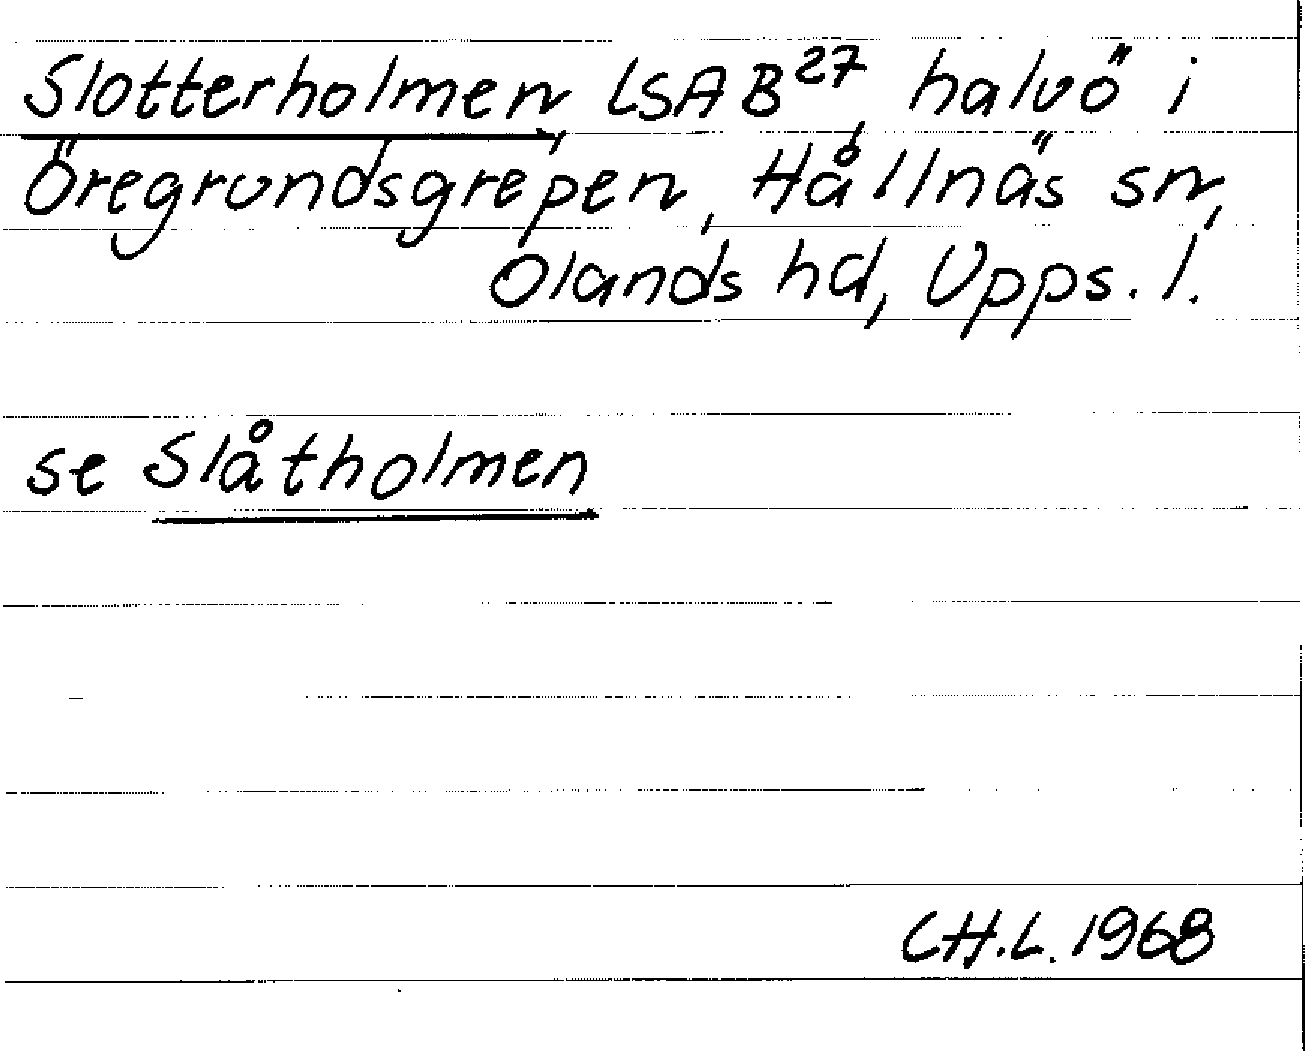 Slotterholmen, LSA B²⁷, halvö i
Öregrundsgrepen, Hållnäs sn,
Olands hd, Upps. l.
se Slåtholmen
CH.L. 1968